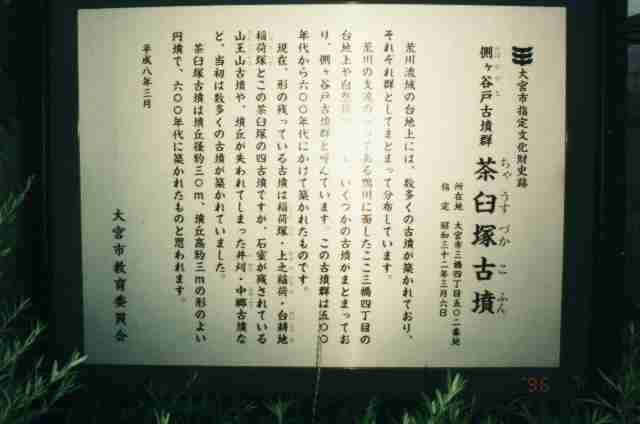 大宮市指定文化財史跡
側ヶ谷戸古墳群
茶臼塚古墳
ちゃうすづかこふん
所在地 大宮市三橋四丁目五〇二番地
指定 昭和三十二年三月六日
荒川流域の台地上には、数多くの古墳が築かれており、
それぞれ群としてまとまって分布しています。
荒川の支流の
である鴨川に面したここ三橋四丁目の
台地上や自然
いくつかの古墳がまとまってお
り、側ヶ谷戸古墳群と呼んでいます。この古墳群は五〇〇
年代から六〇〇年代にかけて築かれたものです。
現在、形の残っている古墳は稲荷塚・上之稲荷・台耕地
稲荷塚とこの茶臼塚の四古墳ですが、石室が残されている
山王山古墳や、墳丘が失われてしまった井刈・中郷古墳な
ど、当初は数多くの古墳が築かれていました。
茶臼塚古墳は墳丘径約三〇m、墳丘高約三mの形のよい
円墳で、六〇〇年代に築かれたものと思われます。
平成八年三月
大宮市教育委員会
'96